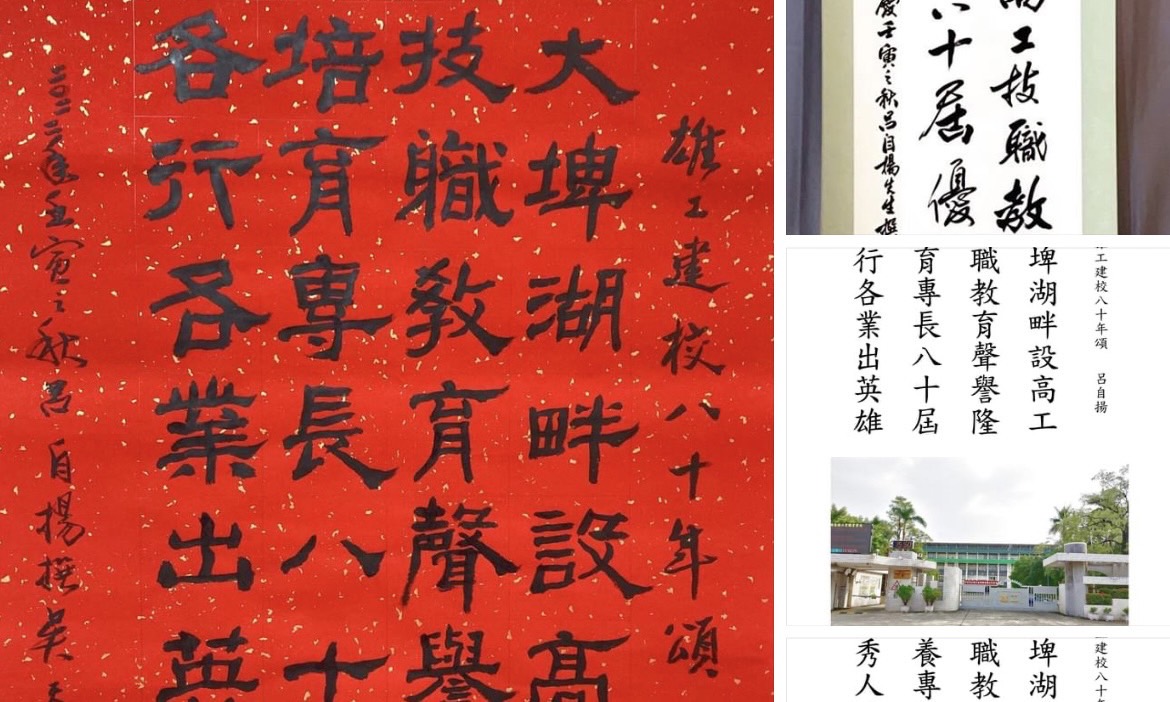 雄工建校八十年頌
大埤湖畔設高
技職教育聲譽
培育專長八十
各行各業出英
二〇二二年壬寅之秋呂自揚撰吳
工技職教
八十居優
慶壬寅之秋呂自揚先生撰
工建校八十年頌 呂自揚
埤湖畔設高工
職教育聲譽隆
育專長八十屆
行各業出英雄
建校八十年
埤湖
職教
養專
秀人